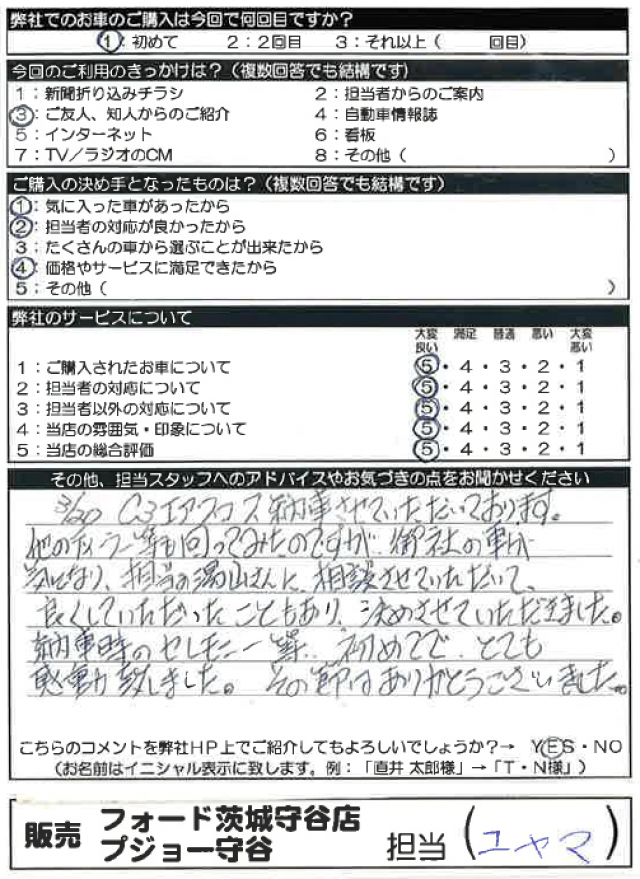 弊社でのお車のご購入は今回で何回目ですか?
1:初めて 2:2回目 3:それ以上( 回目)
今回のご利用のきっかけは?(複数回答でも結構です)
1:新聞折り込みチラシ 2:担当者からのご案内
3:ご友人、知人からのご紹介 4:自動車情報誌
5:インターネット 6:看板
7:TV/ラジオのCM 8:その他( )
ご購入の決め手となったものは?(複数回答でも結構です)
1:気に入った車があったから
2:担当者の対応が良かったから
3:たくさんの車から選ぶことが出来たから
4:価格やサービスに満足できたから
5:その他( )
弊社のサービスについて
大変良い 満足 普通 悪い 大変悪い
1:ご購入されたお車について 5・4・3・2・1
2:担当者の対応について 5・4・3・2・1
3:担当者以外の対応について 5・4・3・2・1
4:当店の雰囲気・印象について 5・4・3・2・1
5:当店の総合評価 5・4・3・2・1
その他、担当スタッフへのアドバイスやお気づきの点をお聞かせください
3/30 C3エアクロス納車させていただいております。
他のディーラー等も回ってみたのですが、御社の車が
気になり、担当の湯山さんに、相談させていただいて、
良くしていただいたこともあり、決めさせていただきました。
納車時のセレモニー等、初めてで、とても
感動致しました。その節はありがとうございました。
こちらのコメントを弊社HP上でご紹介してもよろしいでしょうか?→ YES・NO
(お名前はイニシャル表示に致します。例:「直井 太郎様」→「T・N様」)
販売 フォード茨城守谷店
プジョー守谷 担当(ユヤマ)